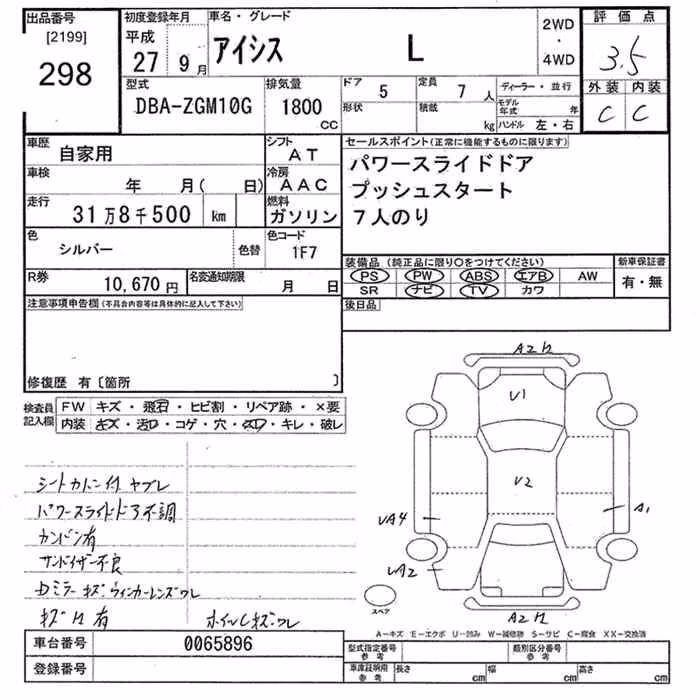 出品番号 初度登録年月 車名・グレード 2WD ・ 4WD 評価点
[2199] 平成
298 27 9月 アイシス L 3.5
型式 排気量 ドア 5 定員 7人 ディーラー・並行 外装 内装
DBA-ZGM10G 1800 CC 形状 積載 kg モデル年式 年 C C
ハンドル 左・右
車歴 自家用 シフト AT セールスポイント(正常に機能するものに限ります)
車検 年 月( 日) 冷房 AAC パワースライドドア
走行 31万8千500 km 燃料 ガソリン プッシュスタート
7人のり
色 シルバー 色替 色コード 1F7
装備品 (純正品に限り〇をつけてください) 新車保証書
R券 10,670円 名変通知期限 月 日 PS PW ABS エアB AW 有・無
SR ナビ TV カワ
注意事項申告欄(不具合内容等は具体的に記入して下さい) 後日品
修復歴 有〔箇所 〕
検査員記入欄 FW キズ・飛石・ヒビ割・リペア跡・×要
内装 キズ・汚れ・コゲ・穴・スレ・キレ・破レ
シートカバー付 ヤブレ
パワースライドドア不調
カンバン有
サンバイザー不良
Dミラーキズ ウィンカーレンズワレ
キズ 有 ホイルCキズワレ
A2
U1
U2
A1
UA4
UA2
スペア
A2
A−キズ E−エクボ U−凹み W−補修跡 S−サビ C−腐食 XX−交換済
車台番号 0065896 型式指定番号 参考 類別区分番号 参考
登録番号 車庫証明用 参考 長さ cm 幅 cm 高さ cm